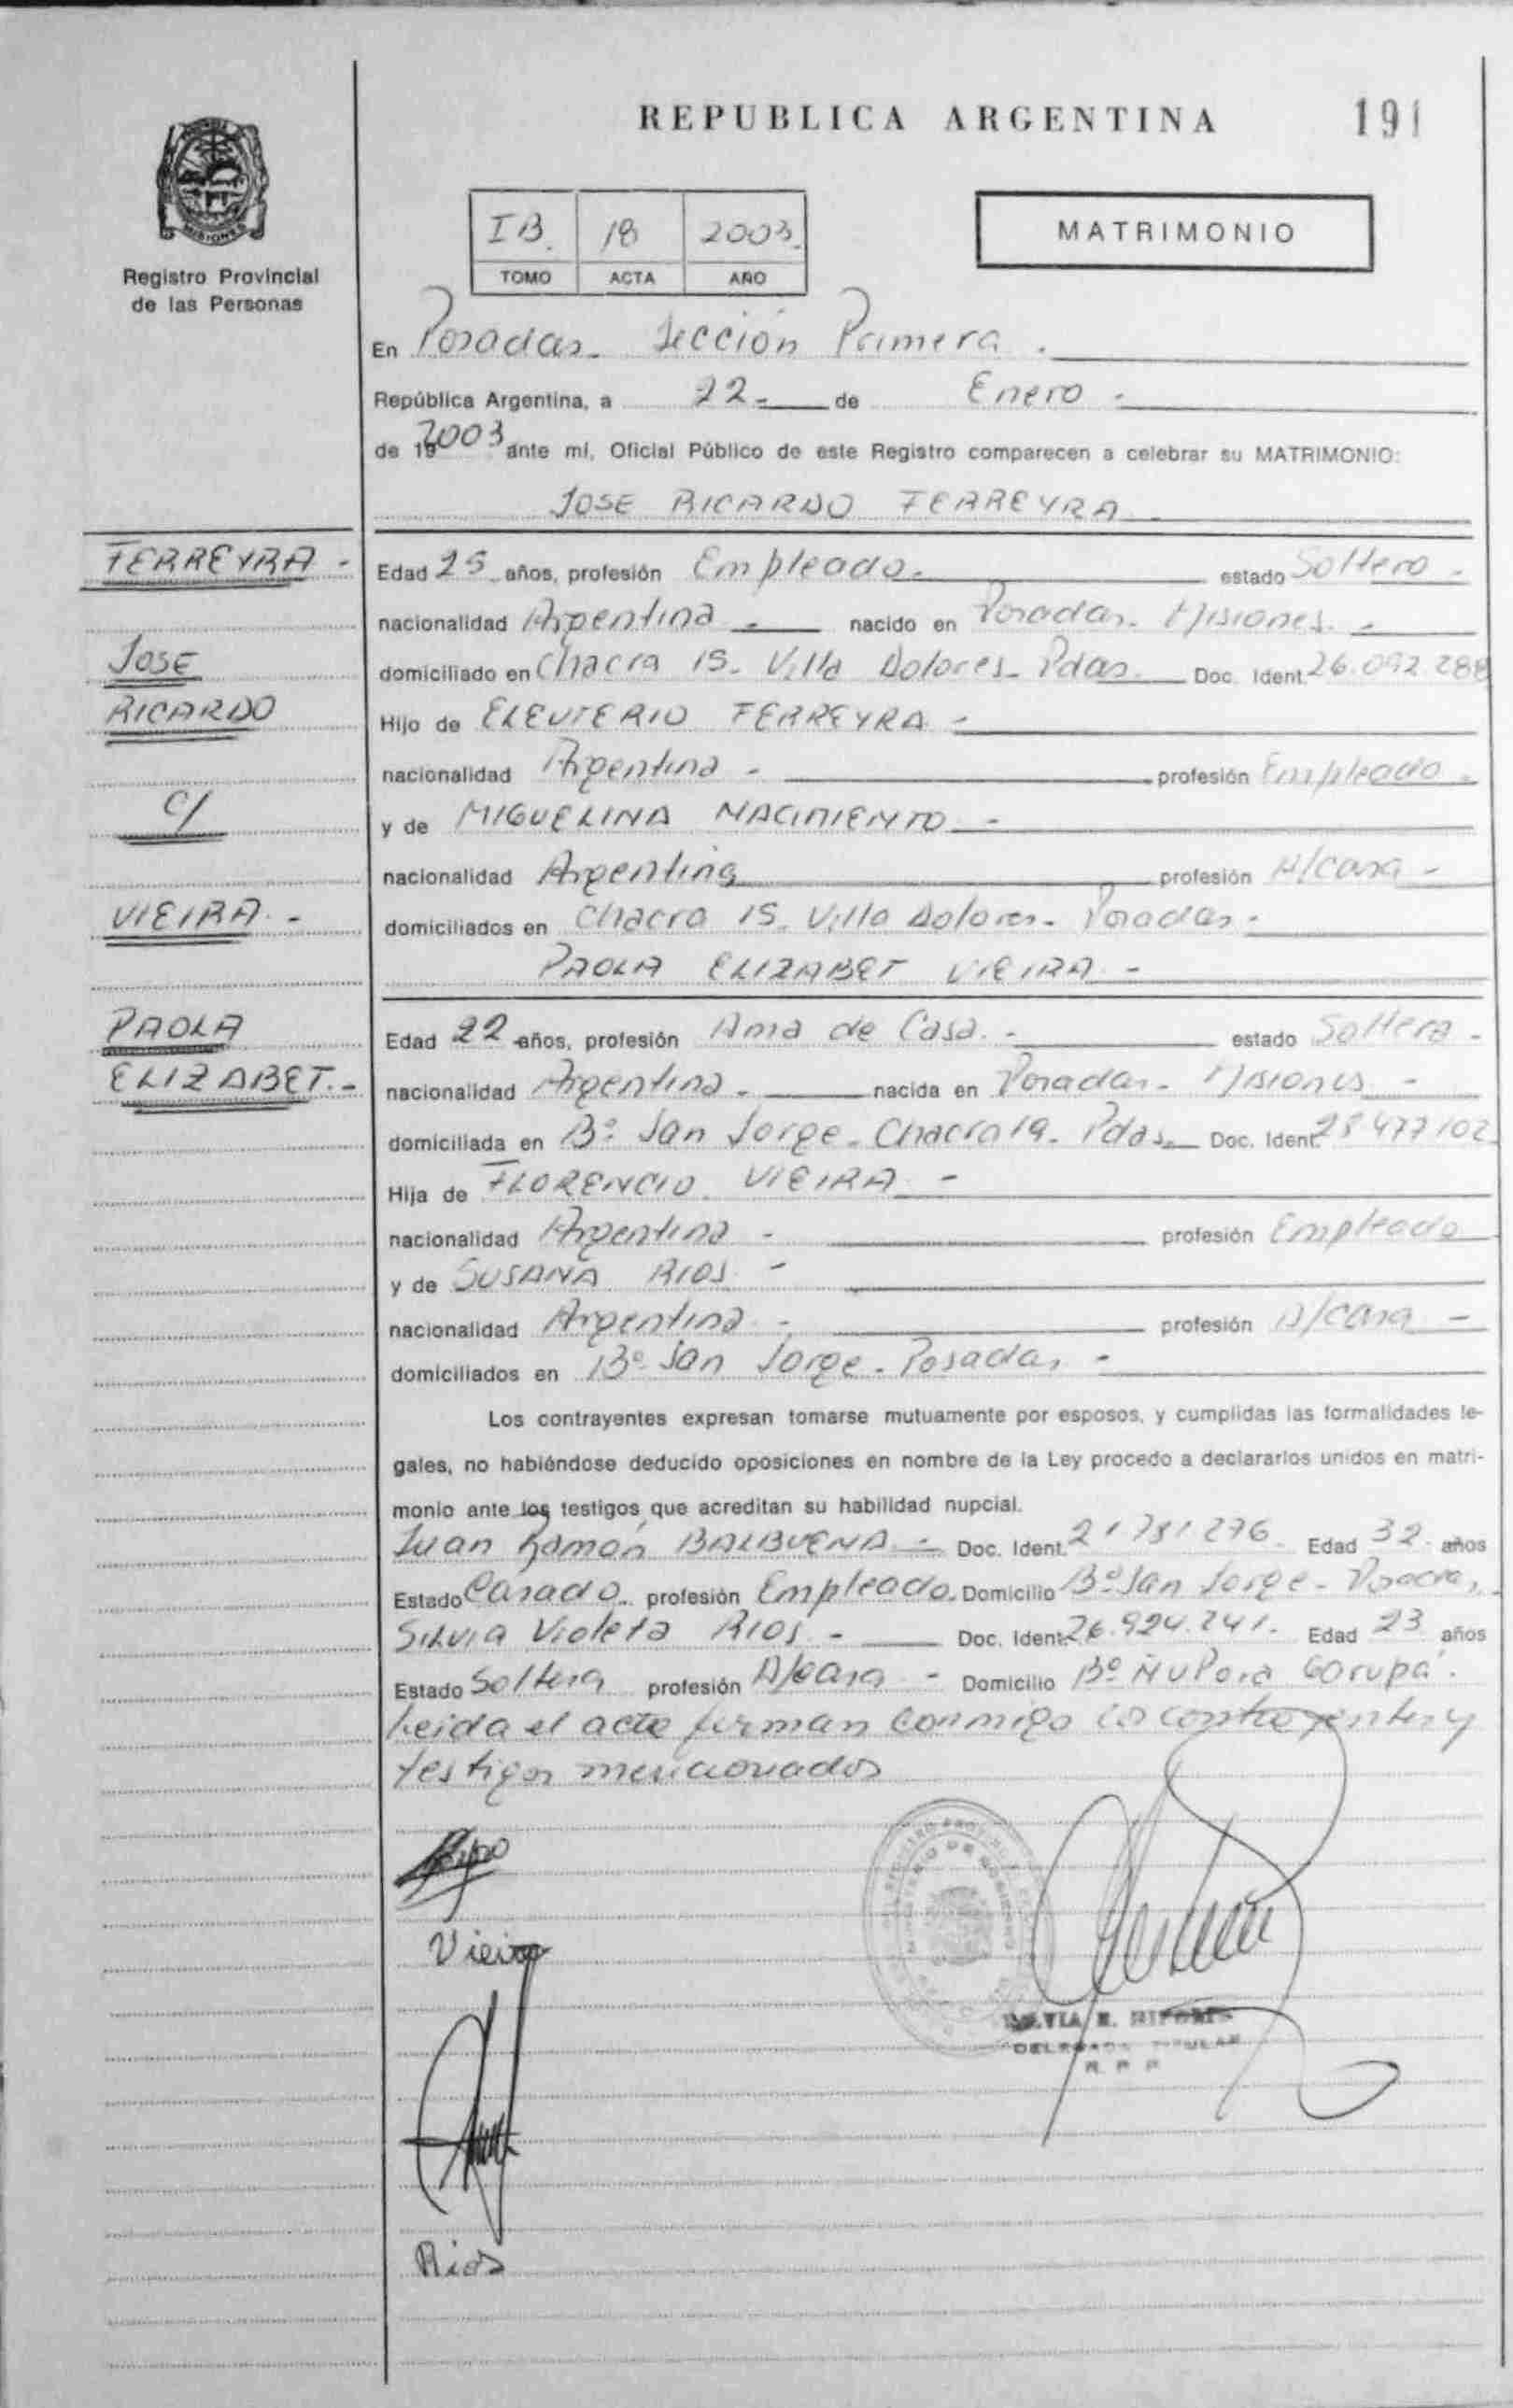 REPUBLICA ARGENTINA
191
MISIONES
Registro Provincial
de las Personas
IB. 18 2003.
TOMO ACTA AÑO
MATRIMONIO
En Posadas - Sección Primera.
República Argentina, a 22 - de Enero -
de 19 2003 ante mí, Oficial Público de este Registro comparecen a celebrar su MATRIMONIO:
JOSE RICARDO FERREYRA
FERREYRA -
JOSE
RICARDO
C/
VIEIRA. -
PAOLA
ELIZABET. -
Edad 25 años, profesión Empleado. estado Soltero -
nacionalidad Argentina - nacido en Posadas - Misiones. -
domiciliado en Chacra 15. Villa Dolores - Pdas. Doc. Ident. 26.092.288
Hijo de ELEUTERIO FERREYRA -
nacionalidad Argentina - profesión Empleado -
y de MIGUELINA NACIMIENTO -
nacionalidad Argentina profesión A/casa -
domiciliados en Chacra 15. Villa Dolores - Posadas -
PAOLA ELIZABET VIEIRA -
Edad 22 años, profesión Ama de Casa. - estado Soltera -
nacionalidad Argentina - nacida en Posadas - Misiones -
domiciliada en Bº San Jorge - Chacra 19 - Pdas. Doc. Ident. 28 477 102
Hija de FLORENCIO VIEIRA -
nacionalidad Argentina - profesión Empleado
y de SUSANA RIOS -
nacionalidad Argentina - profesión A/casa -
domiciliados en Bº San Jorge - Posadas -
Los contrayentes expresan tomarse mutuamente por esposos, y cumplidas las formalidades le-
gales, no habiéndose deducido oposiciones en nombre de la Ley procedo a declararlos unidos en matri-
monio ante los testigos que acreditan su habilidad nupcial.
Juan Ramón BALBUENA - Doc. Ident. 21 781 276 Edad 32 años
Estado Casado. profesión Empleado. Domicilio Bº San Jorge - Posadas,
Silvia Violeta RIOS - Doc. Ident. 26.924.241. Edad 23 años
Estado Soltera profesión A/casa - Domicilio Bº Ñu Porá Garupá.
Leida el acta firman conmigo los contrayentes y
testigos mencionados
Vieira
Rios
R. P. P.